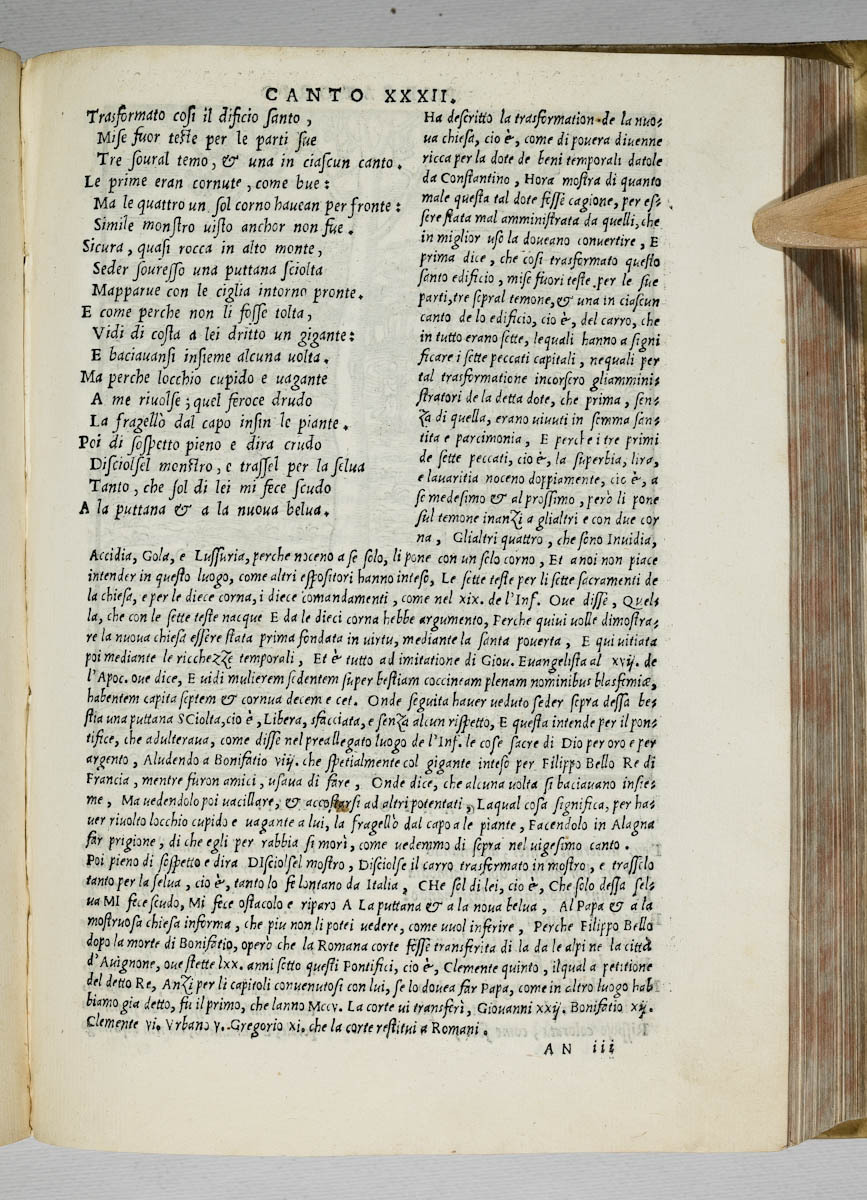 CANTO XXXII.
Trasformato cosi il dificio santo,
Mise fuor teste per le parti sue
Tre soural temo, & una in ciascun canto.
Le prime eran cornute, come bue:
Ma le quattro un sol corno hauean per fronte:
Simile monstro uisto anchor non fue.
Sicura, quasi rocca in alto monte,
Seder souresso una puttana sciolta
Mapparue con le ciglia intorno pronte.
E come perche non li fosse tolta,
Vidi di costa a lei dritto un gigante:
E baciauansi insieme alcuna uolta.
Ma perche locchio cupido e uagante
A me riuolse; quel feroce drudo
La fragellò dal capo insin le piante.
Poi di sospetto pieno e dira crudo
Disciolsel monstro, e trassel per la selua
Tanto, che sol di lei mi fece scudo
A la puttana & a la nuoua belua.
Ha descritto la trasformation de la nuo-
ua chiesa, cio è, come di pouera diuenne
ricca per la dote de beni temporali datole
da Constantino, Hora mostra di quanto
male questa tal dote fesse cagione, per es-
sere stata mal amministrata da quelli, che
in miglior uso la doueano conuertire, E
prima dice, che cosi trasformato questo
santo edificio, mise fuori teste per le sue
parti, tre sepral temone, & una in ciascun
canto de lo edificio, cio è, del carro, che
in tutto erano sette, lequali hanno a signi
ficare i sette peccati capitali, nequali per
tal trasformatione incorsero gliammini-
stratori de la detta dote, che prima, sen-
za di quella, erano uiuuti in somma san-
tita e parcimonia, E perche i tre primi
de sette peccati, cio è, la superbia, lira,
e lauaritia noceno doppiamente, cio è, a
se medesimo & al prossimo, però li pone
sul temone inanzi a glialtri e con due cor
na, Glialtri quattro, che sono Inuidia,
Accidia, Gola, e Lussuria, perche noceno a se solo, li pone con un solo corno, Et a noi non piace
intender in questo luogo, come altri espositori hanno inteso, Le sette teste per li sette sacramenti de
la chiesa, e per le diece corna, i diece comandamenti, come nel xix. de l'Inf. Oue disse, Quel-
la, che con le sette teste nacque E da le dieci corna hebbe argumento, Perche quiui uolle dimostra-
re la nuoua chiesa essere stata prima fondata in uirtu, mediante la santa pouerta, E qui uitiata
poi mediante le ricchezze temporali, Et è tutto ad imitatione di Giou. Euangelista al xvij. de
l'Apoc. oue dice, E uidi mulierem sedentem super bestiam coccineam plenam nominibus blasfemiæ,
habentem capita septem & cornua decem e cet. Onde seguita hauer ueduto seder sopra dessa be-
stia una puttana SCiolta, cio è, Libera, sfacciata, e senza alcun rispetto, E questa intende per il pon-
tifice, che adulteraua, come disse nel preallegato luogo de l'Inf. le cose sacre di Dio per oro e per
argento, Aludendo a Bonifatio viij. che spetialmente col gigante inteso per Filippo Bello Re di
Francia, mentre furon amici, usaua di fare, Onde dice, che alcuna uolta si baciauano insie-
me, Ma uedendolo poi uacillare, & accostarsi ad altri potentati, Laqual cosa significa, per ha-
uer riuolto locchio cupido e uagante a lui, la fragellò dal capo a le piante, Facendolo in Alagna
far prigione, di che egli per rabbia si morì, come uedemmo di sopra nel uigesimo canto.
Poi pieno di sospetto e dira DIsciolsel mostro, Disciolse il carro trasformato in mostro, e trasselo
tanto per la selua, cio è, tanto lo fe lontano da Italia, CHe sol di lei, cio è, Che solo dessa sel-
ua MI fece scudo, Mi fece ostacolo e riparo A La puttana & a la noua belua, Al Papa & a la
mostruosa chiesa informa, che piu non li potei uedere, come uuol inferire, Perche Filippo Bello
dopo la morte di Bonifatio, operò che la Romana corte fesse transferita di la da le alpi ne la città
d'Auignone, oue stette lxx. anni sotto questi Pontifici, cio è, Clemente quinto, ilqual a petitione
del detto Re, Anzi per li capitoli conuenutosi con lui, se lo douea far Papa, come in altro luogo hab
biamo gia detto, fu il primo, che lanno Mccv. La corte ui transferì, Giouanni xxij. Bonifatio xij.
Clemente vi. Vrbano v. Gregorio xi. che la corte restitui a Romani.
AN iii